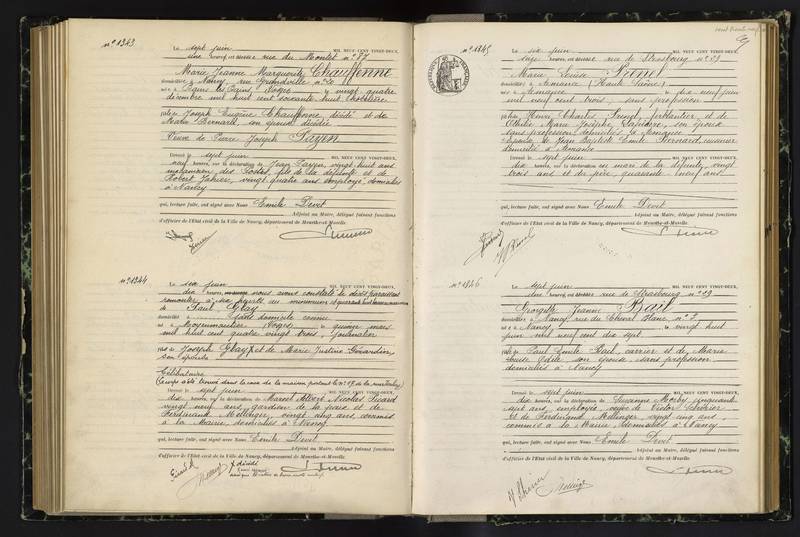 n° 1343
Le sept juin MIL NEUF CENT VINGT-DEUX,
une heure, est rue du Montet n° 87
Marie Jeanne Marguerite Chauffenne
domiciliée à Nancy, rue Grandville n° 20
née à Bains les Bains, Vosges, le vingt quatre
décembre mil huit cent soixante huit, hôtelière
fille de Joseph Eugène Chauffenne décédé et de
Bernard, son épouse décédée
Veuve de Pierre Joseph Payen
Dressé le sept juin
neuf heures, sur la déclaration de Jean Payen, vingt huit ans
mécanicien des Postes, fils de la défunte et de
Robert, vingt quatre ans, employé domiciliés
à Nancy
qui, lecture faite, ont signé avec Nous Emile Devit
Adjoint au Maire, délégué faisant fonctions
d'officier de l'Etat civil de la Ville de Nancy, département de Meurthe-et-Moselle.
n° 1344
Le six juin MIL NEUF CENT VINGT-DEUX,
dix heures, nous avons constaté le décès paraissant
remonter à
de Paul Glay
sans domicile connu
né à Moyenmoutier, Vosges, le quinze mars
mil huit cent quatre vingt trois, journalier
fils de Joseph Glay et de Marie Justine Gérardin,
son épouse
Célibataire
Dressé le sept juin
dix heures, sur la déclaration de Marcel Albert Nicolas Picard
vingt neuf ans, gardien de la paix et de
Ferdinand Mellinger, vingt cinq ans, commis
à la Mairie, domiciliés à Nancy
qui, lecture faite, ont signé avec Nous Emile Devit
Adjoint au Maire, délégué faisant fonctions
d'officier de l'Etat civil de la Ville de Nancy, département de Meurthe-et-Moselle.
n° 1345
Le six juin MIL NEUF CENT VINGT-DEUX,
heures, est rue de Strasbourg n° 59
Marie Louise Prinet
domiciliée à Amance (Haute Saône)
née à Amance le dix neuf juin
mil neuf cent trois, sans profession
fille de Henri Charles Prinet, et de
Marie Joséphe, son épouse
sans profession domiciliés à Amance
Epouse de Jean Baptiste Emile Bernard,
domicilié à Amance
Dressé le sept juin
dix heures, sur la déclaration du mari de la défunte, vingt
trois ans et du père, quarante neuf ans
qui, lecture faite, ont signé avec Nous Emile Devit
Adjoint au Maire, délégué faisant fonctions
d'officier de l'Etat civil de la Ville de Nancy, département de Meurthe-et-Moselle.
n° 1346
Le sept juin MIL NEUF CENT VINGT-DEUX,
une heure, est rue de Strasbourg n° 59
Georgette Jeanne Bail
domiciliée à Nancy rue du Cheval Blanc n° 2
née à Nancy le vingt huit
juin mil neuf cent dix sept
fille de Paul Emile Bail, carrier et de Marie
Louise Odile, son épouse, sans profession
domiciliés à Nancy
Dressé le sept juin
dix heures, sur la déclaration de Suzanne, cinquante
sept ans, employée, veuve de Victor
et de Ferdinand Mellinger, vingt cinq ans
commis à la Mairie, domiciliés à Nancy
qui, lecture faite, ont signé avec Nous Emile Devit
Adjoint au Maire, délégué faisant fonctions
d'officier de l'Etat civil de la Ville de Nancy, département de Meurthe-et-Moselle.